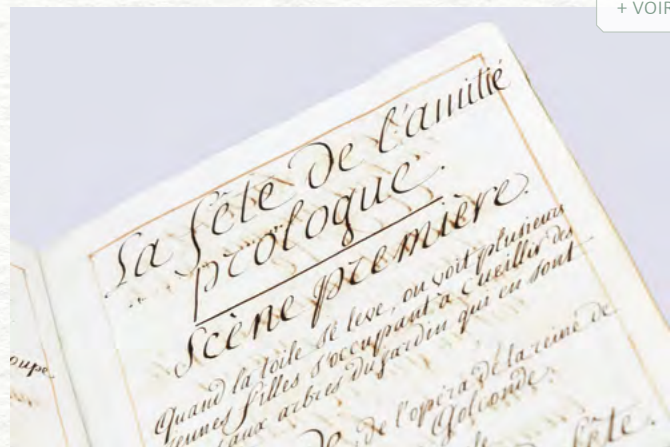 + VOIR
La fête de l'amitié
prologue.
Scène première.
Quand la toile se leve, on voit plusieurs
jeunes filles s'occupant a cueillir des
aux arbres du jardin qui en sont
de l'opéra de la reine de
Golconde.
oupe